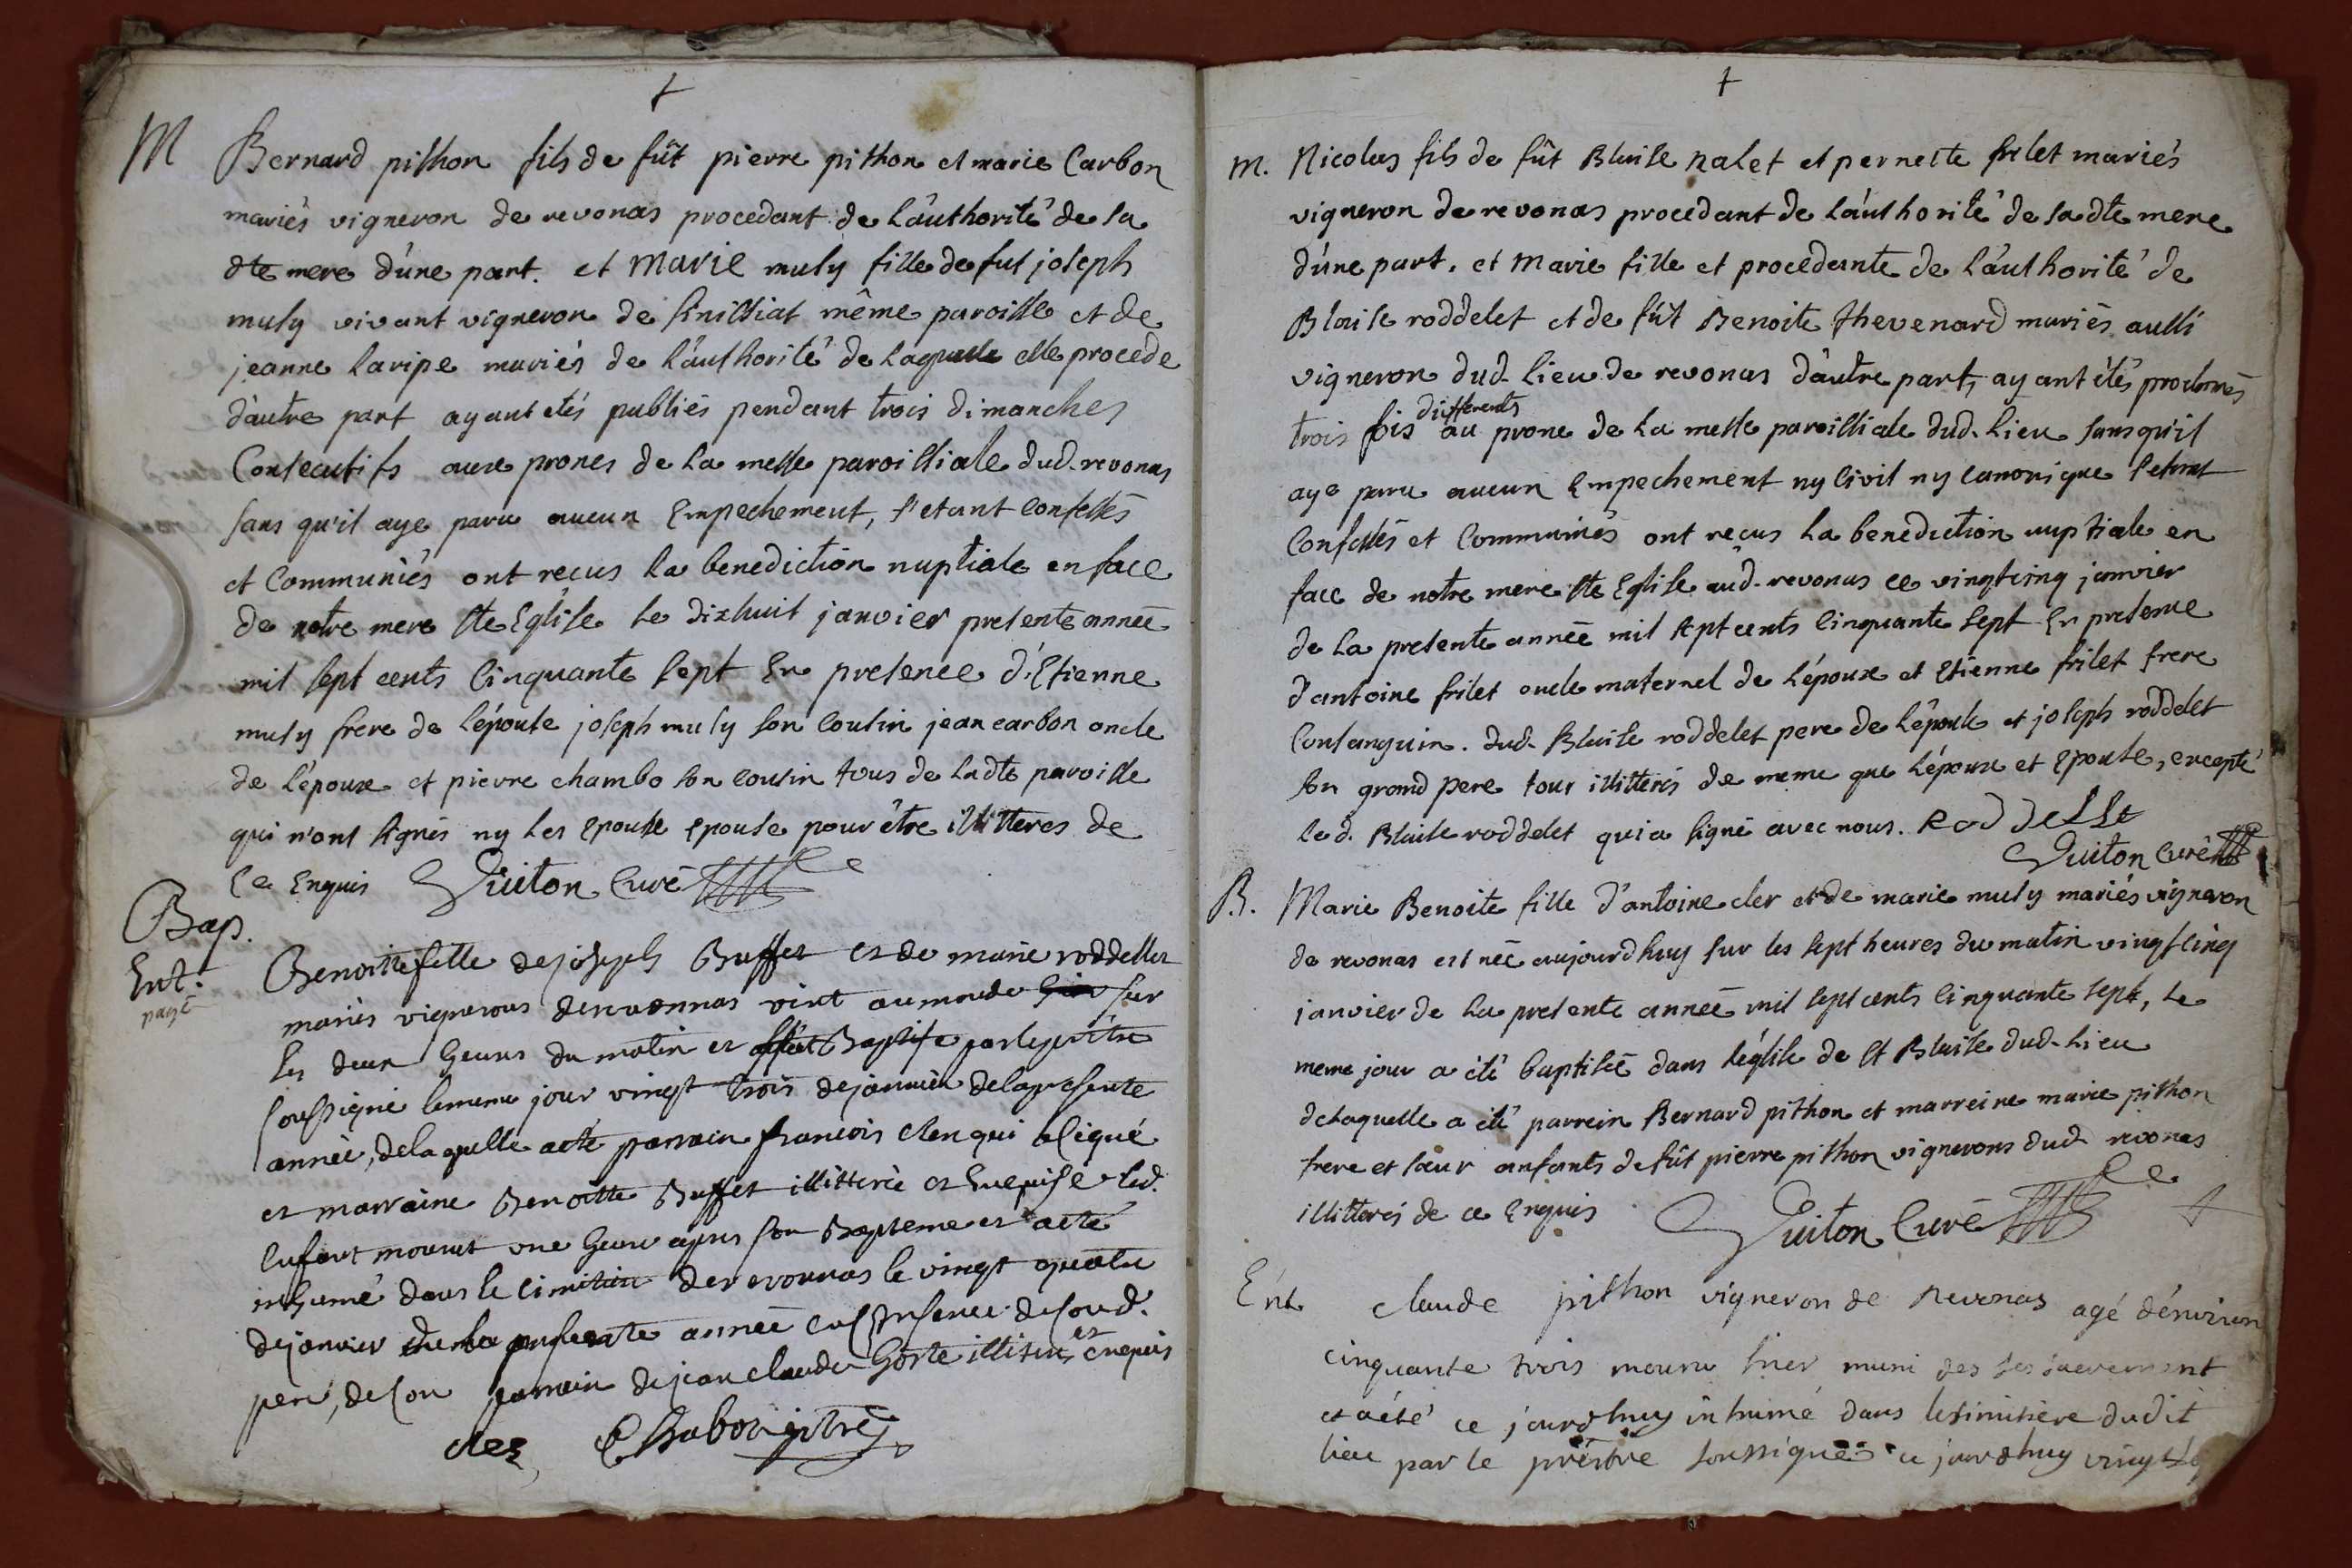 †
M Bernard pithon fils de fût pierre pithon et marie Carbon
mariés vigneron de revonas procedant de l'authorité de sa
dte mere d'une part. et Marie muly fille de fut joseph
muly vivant vigneron de même paroisse et de
jeanne laripe mariés de l'authorité de laquelle elle procede
d'autre part ayant etés publiés pendant trois dimanches
Consecutifs aux prones de la messe paroissiale dud. revonas
sans qu'il aye paru aucun Empechement, s'etant confessés
et Communiés ont recus la benediction nuptiale en face
de notre mere Ste Eglise le dixhuit janvier presente année
mil sept cents Cinquante sept En presence d'Etienne
muly frere de l'épouse joseph muly son cousin jean carbon oncle
de l'époux et pierre chambo son cousin tous de ladte paroisse
qui n'ont signés ny les epouse epouse pour être illitteres de
Ce Enquis Guiton Curé
Bap.
Ent.
payé
Benoitte fille de joseph Buffet et de marie roddellet
mariés vignerons de revonnas vint au monde sur
les deux heures du matin et Baptisé par le prêtre
soussigné le meme jour vingt trois de janvier de la presente
année, de laquelle a été parrain francois cler qui a signé
et marraine Benoitte Buffet illitterée et Enquise led.
Enfant mourut une heure apres son Bapteme et a eté
inhumé dans le cimitiere de revonnas le vingt quatre
de janvier de la presente année en presence de soud.
pere, de son parrain de jean claude Gorte illiteres et enquis
cler Chabou ptre
†
m. Nicolas fils de fût Blaise nalet et pernette frilet mariés
vigneron de revonas procedant de l'authorité de sadte mere
d'une part. et Marie fille et procedante de l'authorité de
Blaise roddelet et de fût Benoite thevenard mariés aussi
vigneron dud. lieu de revonas d'autre part, ayant étés proclamés
trois fois differents au prone de la messe paroissiale dud. lieu sans qu'il
aye paru aucun Empechement ny Civil ny canonique s'etant
Confessés et Communiés ont recus la benediction nuptiale en
face de notre mere Ste Eglise aud. revonas ce vingtcinq janvier
de la presente année mil sept cents Cinquante sept En presence
d'antoine frilet oncle maternel de l'époux et Etienne frilet frere
Consanguin. dud. Blaise roddelet pere de l'épouse et joseph roddelet
son grand pere tous illitterés de meme que l'époux et Epouse, excepté
led. Blaise roddelet qui a signé avec nous. Roddellet
Guiton Curé
B. Marie Benoite fille d'antoine cler et de marie muly mariés vigneron
de revonas est née aujourdhuy sur les sept heures du matin vingtcinq
janvier de la presente année mil sept cents Cinquante sept, le
meme jour a été baptisée dans l'église de St Blaise dud. lieu
de laquelle a été parrein Bernard pithon et marreine marie pithon
frere et sœur enfants de fût pierre pithon vignerons dud. revonas
illitterés de ce Enquis Guiton Curé
Ent. claude pithon vigneron de Revonas agé d'environ
cinquante trois mouru hier muni des ses sacrement
et a été ce jourdhuy inhumé dans le simitière dudit
lieu par le prêstre soussigué ce jourdhuy